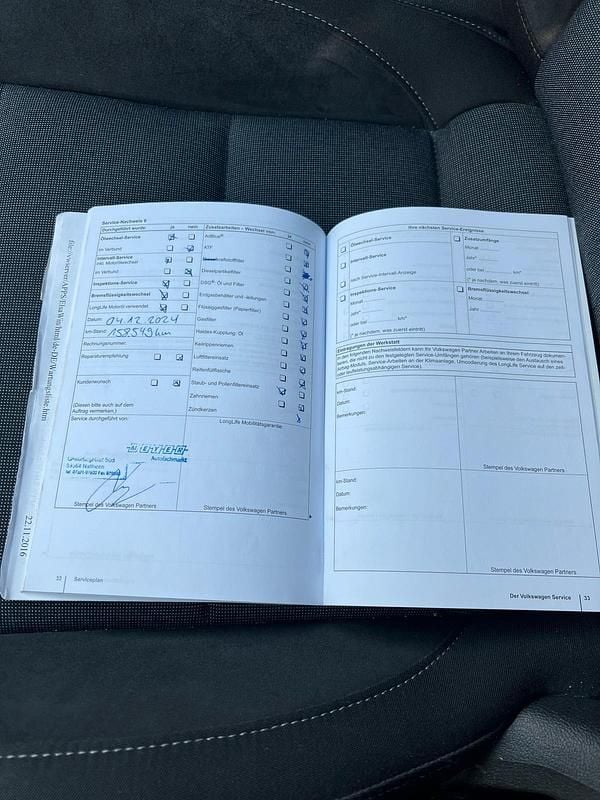 Service-Nachweis 9
Durchgeführt wurde: ja nein
Ölwechsel-Service
im Verbund
Intervall-Service
inkl. Motorölwechsel
im Verbund
Inspektions-Service
Bremsflüssigkeitswechsel
LongLife Motoröl verwendet
Datum: 04.12.2024
km-Stand: 158549 km
Rechnungsnummer:
Reparaturempfehlung
Kundenwunsch
(Diesen bitte auch auf dem
Auftrag vermerken.)
Service durchgeführt von:
MEYER
Autofachmarkt
Stempel des Volkswagen Partners
Zusatzarbeiten – Wechsel von: ja nein
AdBlue®
ATF
Dieselpartikelfilter
DSG®: Öl und Filter
Flüssiggasfilter (Papierfilter)
Gasfilter
Keilrippenriemen
Haldex-Kupplung: Öl
Luftfiltereinsatz
Reifenfüllflasche
Staub- und Pollenfiltereinsatz
Zahnriemen
Zündkerzen
LongLife Mobilitätsgarantie:
Stempel des Volkswagen Partners
32 Serviceplan
22.11.2016
Ihre nächsten Service-Ereignisse
Ölwechsel-Service
Intervall-Service
nach Service-Intervall-Anzeige
Inspektions-Service
Monat
Jahr*
oder bei km*
(* je nachdem, was zuerst eintritt)
Zusatzumfänge
Monat
Jahr*
oder bei km*
(* je nachdem, was zuerst eintritt)
Bremsflüssigkeitswechsel
Monat
Jahr
Eintragungen der Werkstatt
In den folgenden Nachweisfeldern kann Ihr Volkswagen Partner Arbeiten an Ihrem Fahrzeug dokumen-
tieren, die nicht zu den festgelegten Service-Umfängen gehören (beispielsweise den Austausch eines
Airbag-Moduls, Service-Arbeiten an der Klimaanlage, Umcodierung des LongLife Service auf den zeit-
oder laufleistungsabhängigen Service).
km-Stand:
Datum:
Bemerkungen:
Stempel des Volkswagen Partners
km-Stand:
Datum:
Bemerkungen:
Stempel des Volkswagen Partners
Der Volkswagen Service 33